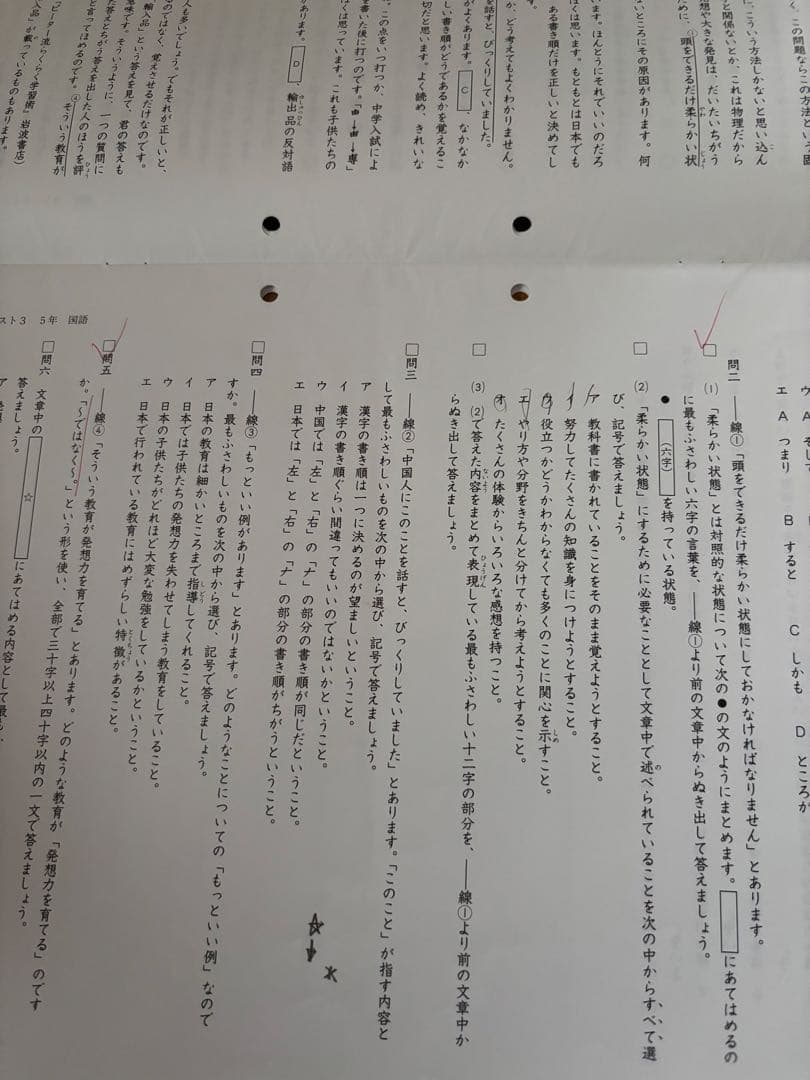 く、この問題ならこの方法という固
、こういう方法しかないと思い込ん
と関係ないとか、これは物理だから
想や大きな発見は、だいたいちがう
ために、①頭をできるだけ柔らかい状
ないところにその原因があります。何
います。ほんとうにそれでいいのだろ
ぼくは思います。もともとは日本でも
ある書き順だけを正しいと決めてし
す。
か、どう考えてもよくわかりません。
を話すと、びっくりしていました。
がよくあります。 C 、なかなか
しい書き順がどうであるかを覚えるこ
切だと思います。よく読め、きれいな
、この点をいつ打つか、中学入試によ
を書いた後に打つのです。
くは思っています。これも子供たちの
があります。 D 、輸出品の反対語
人も多いでしょう。でもそれが正しいと、
のではなく、覚えさせるだけなのです。
輸入品」という答えを見て、君の答えも
意味です。そういうように、一つの質問に
た答えとちがう答えを出した人のほうを評
と言ってほめるのです。④そういう教育が
『ピーター流らくらく学習術』岩波書店)
入品」が載っているものもあります。
スト3 5年 国語
A つまり B すると C しかも D ところが
問二 ――線①「頭をできるだけ柔らかい状態にしておかなければなりません」とあります。
□(1) 「柔らかい状態」とは対照的な状態について次の●の文のようにまとめます。 にあてはめるの
に最もふさわしい六字の言葉を、――線①より前の文章中からぬき出して答えましょう。
● (六字) を持っている状態。
□(2) 「柔らかい状態」にするために必要なこととして文章中で述べられていることを次の中からすべて選
び、記号で答えましょう。
ア 教科書に書かれていることをそのまま覚えようとすること。
イ 努力してたくさんの知識を身につけようとすること。
ウ 役立つかどうかわからなくても多くのことに関心を示すこと。
エ やり方や分野をきちんと分けてから考えようとすること。
オ たくさんの体験からいろいろな感想を持つこと。
□(3) (2)で答えた内容をまとめて表現している最もふさわしい十二字の部分を、――線①より前の文章中か
らぬき出して答えましょう。
□問三 ――線②「中国人にこのことを話すと、びっくりしていました」とあります。「このこと」が指す内容と
して最もふさわしいものを次の中から選び、記号で答えましょう。
ア 漢字の書き順は一つに決めるのが望ましいということ。
イ 漢字の書き順ぐらい間違ってもいいのではないかということ。
ウ 中国では「左」と「右」の「ナ」の部分の書き順が同じだということ。
エ 日本では「左」と「右」の「ナ」の部分の書き順がちがうということ。
□問四 ――線③「もっといい例があります」とあります。どのようなことについての「もっといい例」なので
すか。最もふさわしいものを次の中から選び、記号で答えましょう。
ア 日本の教育は細かいところまで指導してくれること。
イ 日本では子供たちの発想力を失わせてしまう教育をしていること。
ウ 日本の子供たちがどれほど大変な勉強をしているかということ。
エ 日本で行われている教育にはめずらしい特徴があること。
□問五 ――線④「そういう教育が発想力を育てる」とあります。どのような教育が「発想力を育てる」のです
か。「〜ではなく。」という形を使い、全部で三十字以上四十字以内の一文で答えましょう。
□問六 文章中の ☆ にあてはめる内容として最も
答えましょう。